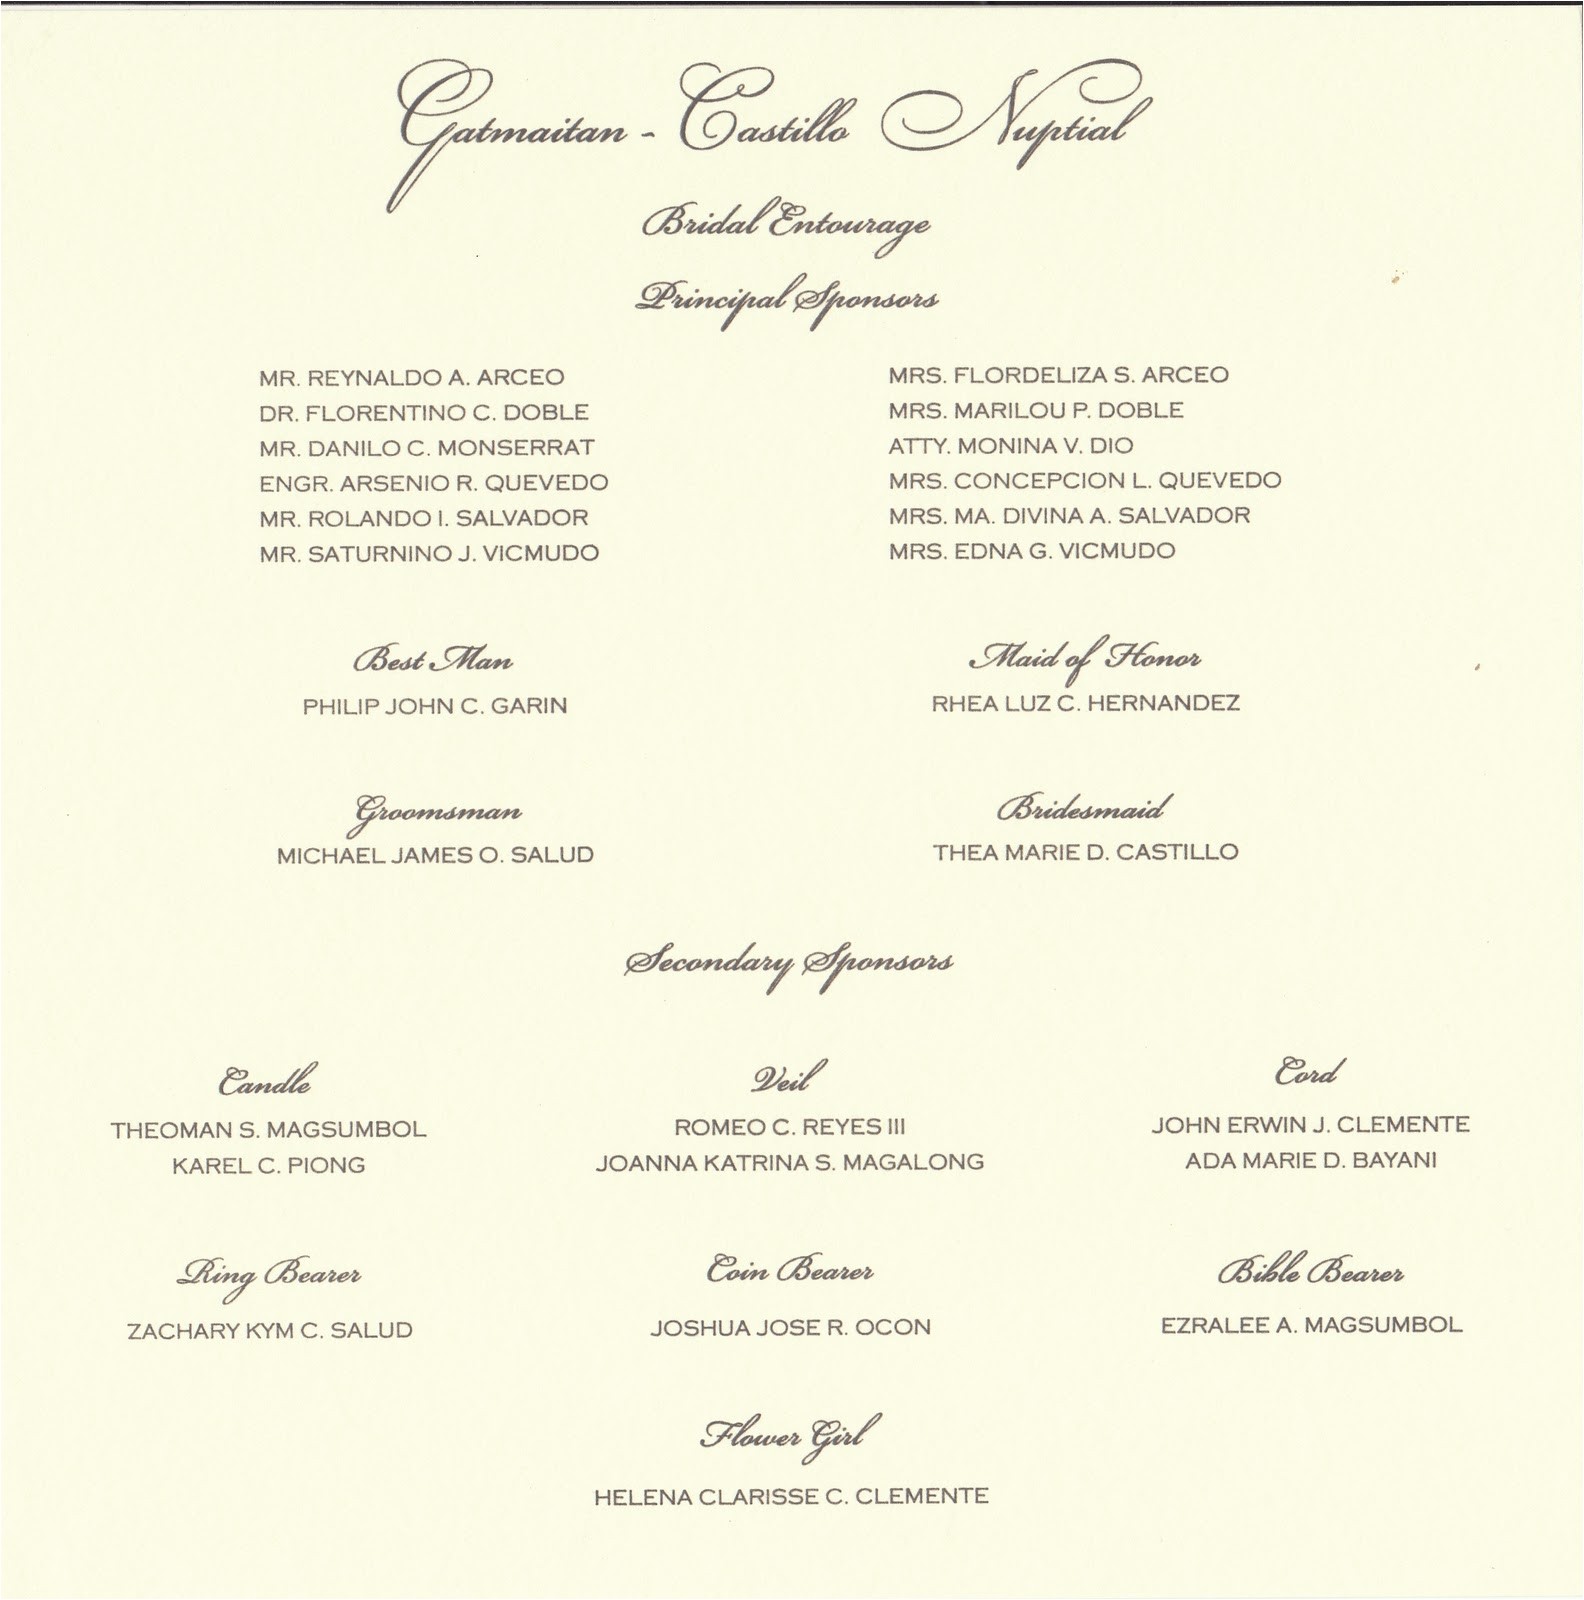 Gatmaitan - Castillo Nuptial
Bridal Entourage
Principal Sponsors
MR. REYNALDO A. ARCEO
DR. FLORENTINO C. DOBLE
MR. DANILO C. MONSERRAT
ENGR. ARSENIO R. QUEVEDO
MR. ROLANDO I. SALVADOR
MR. SATURNINO J. VICMUDO
MRS. FLORDELIZA S. ARCEO
MRS. MARILOU P. DOBLE
ATTY. MONINA V. DIO
MRS. CONCEPCION L. QUEVEDO
MRS. MA. DIVINA A. SALVADOR
MRS. EDNA G. VICMUDO
Best Man
PHILIP JOHN C. GARIN
Maid of Honor
RHEA LUZ C. HERNANDEZ
Groomsman
MICHAEL JAMES O. SALUD
Bridesmaid
THEA MARIE D. CASTILLO
Secondary Sponsors
Candle
THEOMAN S. MAGSUMBOL
KAREL C. PIONG
Veil
ROMEO C. REYES III
JOANNA KATRINA S. MAGALONG
Cord
JOHN ERWIN J. CLEMENTE
ADA MARIE D. BAYANI
Ring Bearer
ZACHARY KYM C. SALUD
Coin Bearer
JOSHUA JOSE R. OCON
Bible Bearer
EZRALEE A. MAGSUMBOL
Flower Girl
HELENA CLARISSE C. CLEMENTE